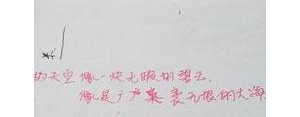 的天空像一块无瑕的碧玉。
像是广广袤无垠的大海